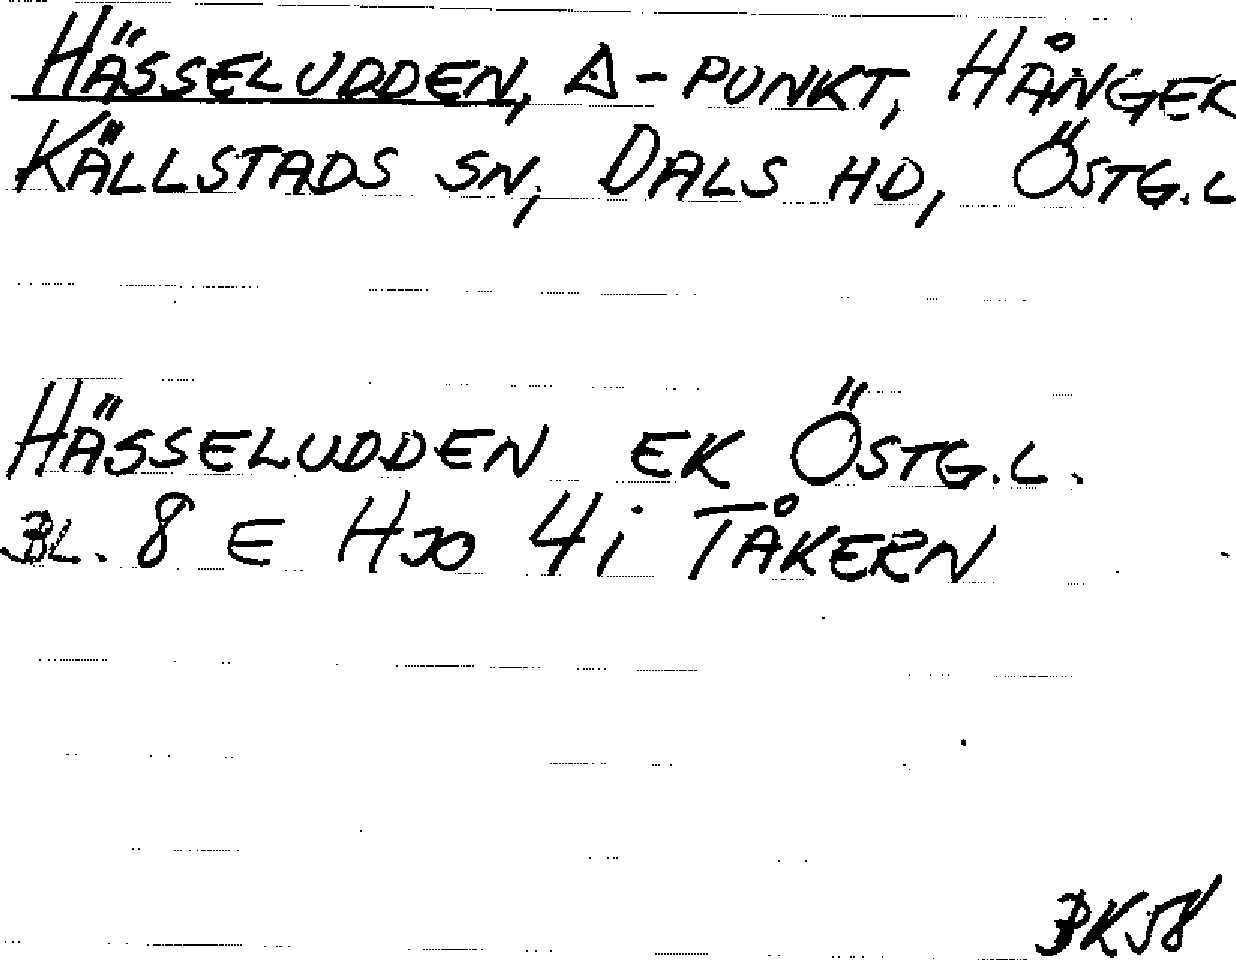 HÄSSELUDDEN, Δ-PUNKT, HÅNGER
KÄLLSTADS SN, DALS HD, ÖSTG.L
HÄSSELUDDEN EK ÖSTG.L.
BL. 8 E HJO 4i TÅKERN
BK58